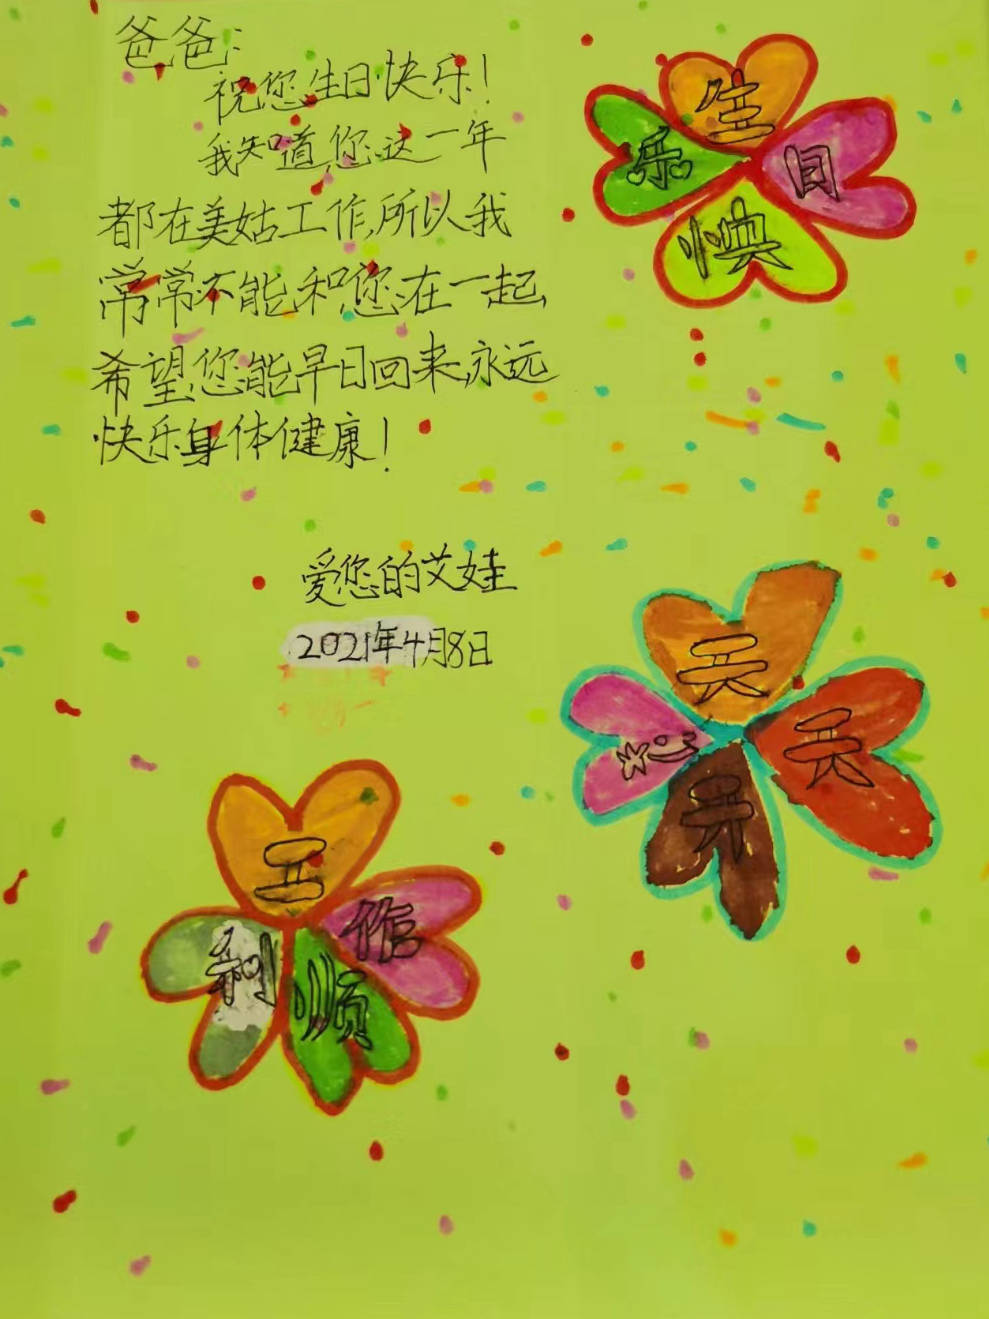 爸爸:
祝您生日快乐!
我知道,您这一年
都在美姑工作,所以我
常常不能和您在一起,
希望您能早日回来,永远
快乐身体健康!
爱您的艾娃
2021年4月8日
生日快乐
天天开心
工作顺利